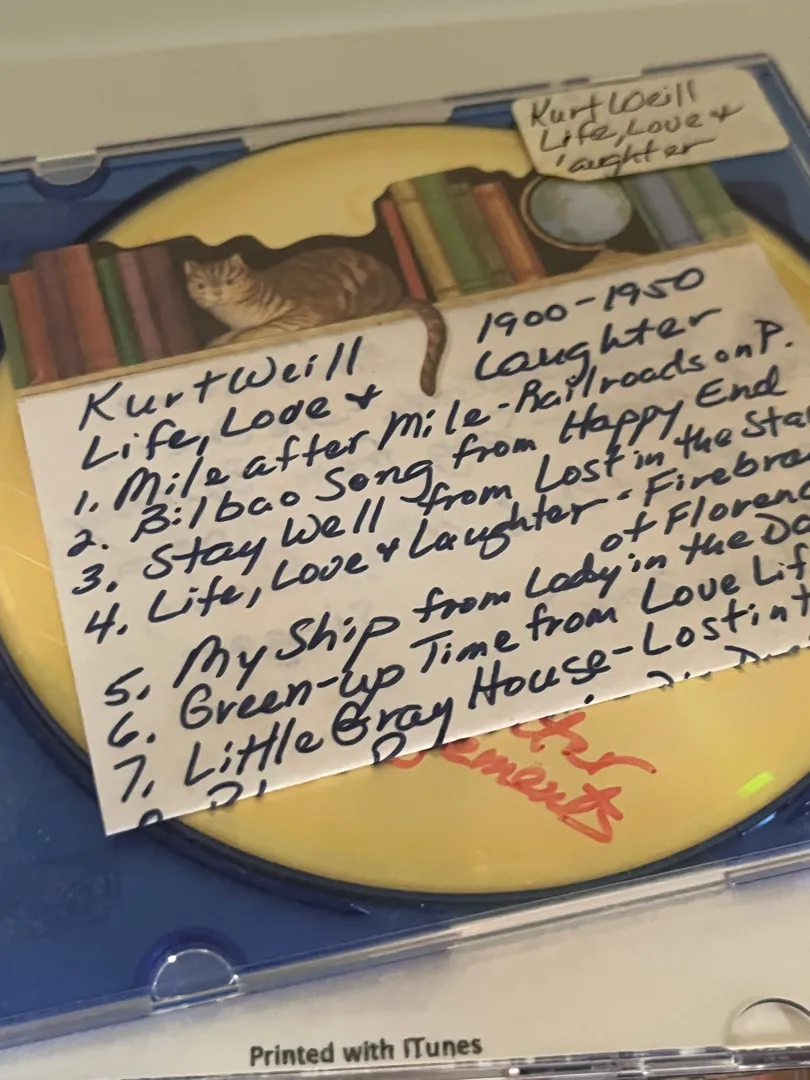 Kurt Weill
Life, Love &
Kurt Weill 1900-1950
Life, Love & Laughter
1. Mile after Mile-Railroads on P.
2. Bilbao Song from Happy End
3. Stay Well from Lost in the
4. Life, Love & Laughter-
of
5. My Ship from Lady in the
6. Green-up Time from Love
7. Little Gray House-Lost in
Printed with iTunes